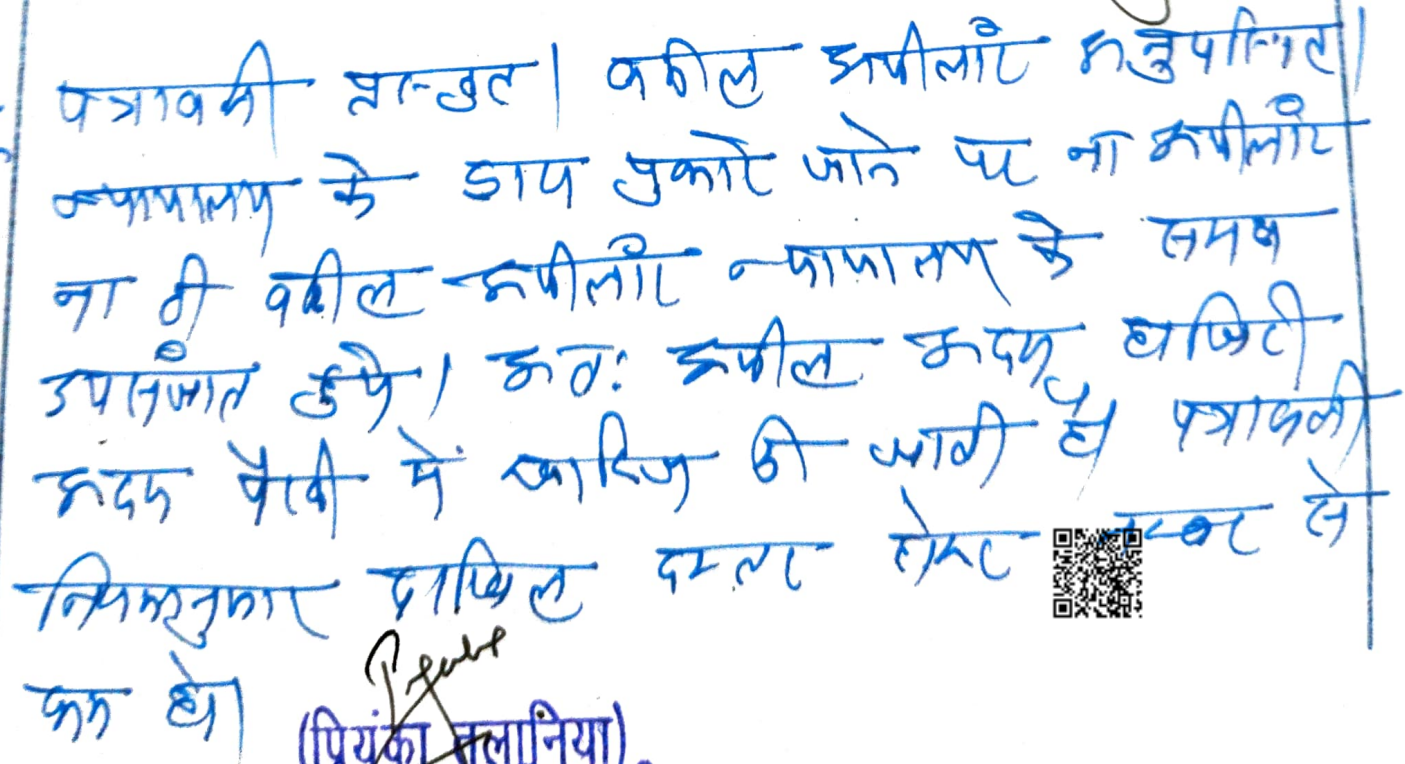 पत्रावली प्रस्तुत। वकील अपीलांट अनुपस्थित।
न्यायालय के द्वारा पुकारे जाने पर ना अपीलांट
ना ही वकील अपीलांट न्यायालय के समक्ष
उपसंजात हुये। अतः अपील अदम हाजिरी
अदम पैरवी में खारिज की जाती है। पत्रावली
नियमानुसार दाखिल दफ्तर होकर नम्बर से
कम हो।
(प्रियंका तलानिया)